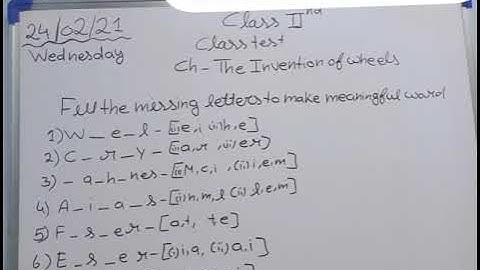 24/02/21
Wednesday
Class IInd
Class test
Ch- The Invention of wheels
Fill the missing letters to make meaningful word
1) W _ e _ l - [(i) e, i (ii) h, e]
2) C _ r _ Y - [(i) a, r, (ii) e r)
3) - a _ h _ nes - [(i) M, c, i, (ii) i, e, m]
4) A _ i _ a _ s - [(i) n, m, l (ii) l, e, m]
5) F _ s _ er - [a, t, t e]
6) E _ s _ e r - [(i) i, a, (ii) a, i]